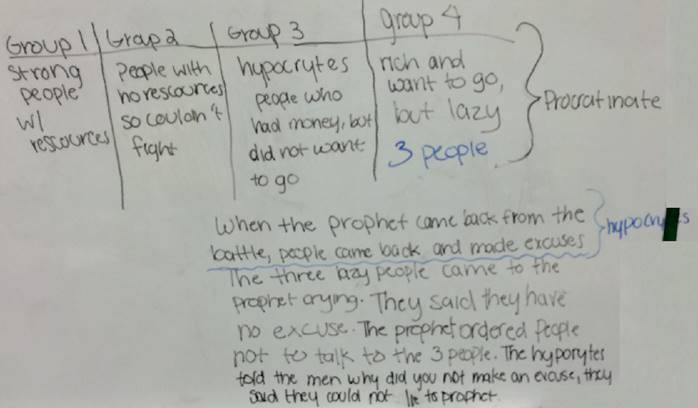 Group 1 | Group 2 | Group 3 | group 4
strong people w/ rescources
People with no rescources so couldn't fight
hypocrytes people who had money, but did not want to go
rich and want to go, but lazy
3 people
Procratinate
When the prophet came back from the
battle, people came back and made excuses
hypocrytes
The three lazy people came to the
prophet crying. They said they have
no excuse. The prophet ordered people
not to talk to the 3 people. The hyporytes
told the men why did you not make an excuse, they
said they could not lie to prophet.